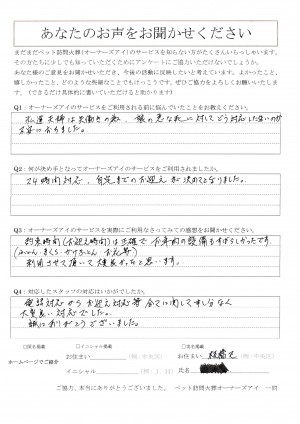 あなたのお声をお聞かせください
まだまだペット訪問火葬(オーナーズアイ)のサービスを知らない方がたくさんいらっしゃいます。
その方たちに少しでも知っていただくためにアンケートにご協力いただけないでしょうか。
あなた様のご意見をお聞かせいただき、今後の活動に反映したいと考えています。よかったこと、
嬉しかったこと、どのような些細なことでもけっこうです。ぜひご協力をよろしくお願いいたしま
す。(できるだけ具体的に書いていただけると助かります)
Q1：オーナーズアイのサービスをご利用される前に悩んでいたことをお教えください。
私達夫婦は共働きの為、猫の急な死に対してどう対応したらいいのか
不安になりました。
Q2：何が決め手となってオーナーズアイのサービスをご利用されましたか。
24時間対応、自宅までのお迎えが決め手となりました。
Q3：オーナーズアイのサービスを実際にご利用なさってみての感想をお聞かせください。
約束時間(お迎え時間)は正確でお車内の設備もすばらしかったです
(ふとん・まくら・かけふとん・お花等)
利用させて頂いて大変良かったと思います。
Q4：対応したスタッフの対応はいかがでしたか。
電話対応からお迎え対応等全てに関して申し分なく
大変良い対応でした。
誠にありがとうございました。
□匿名掲載 □イニシャル掲載 □実名掲載
ホームページでご紹介
お住まい (例：中央区) お住まい
イニシャル (例：J.H) 氏名
ご協力、本当にありがとうございました。 ペット訪問火葬オーナーズアイ 一同